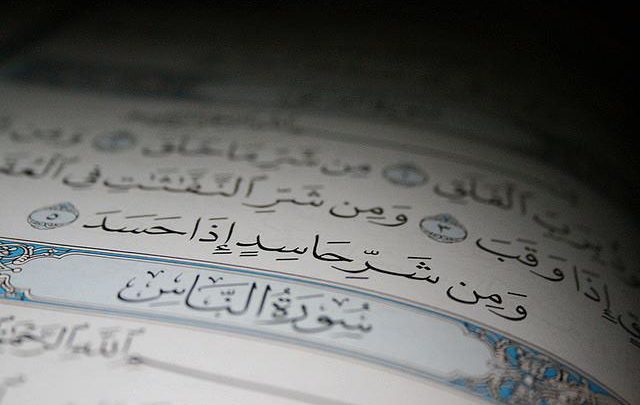 بِرَبِّ ٱلْفَلَقِ ١ مِن شَرِّ مَا خَلَقَ ٢ وَمِن
إِذَا وَقَبَ ٣ وَمِن شَرِّ ٱلنَّفَّـٰثَـٰتِ فِى ٱلْعُقَدِ
وَمِن شَرِّ حَاسِدٍ إِذَا حَسَدَ ٥
سُورَةُ النَّاسِ
ٱللَّهِ